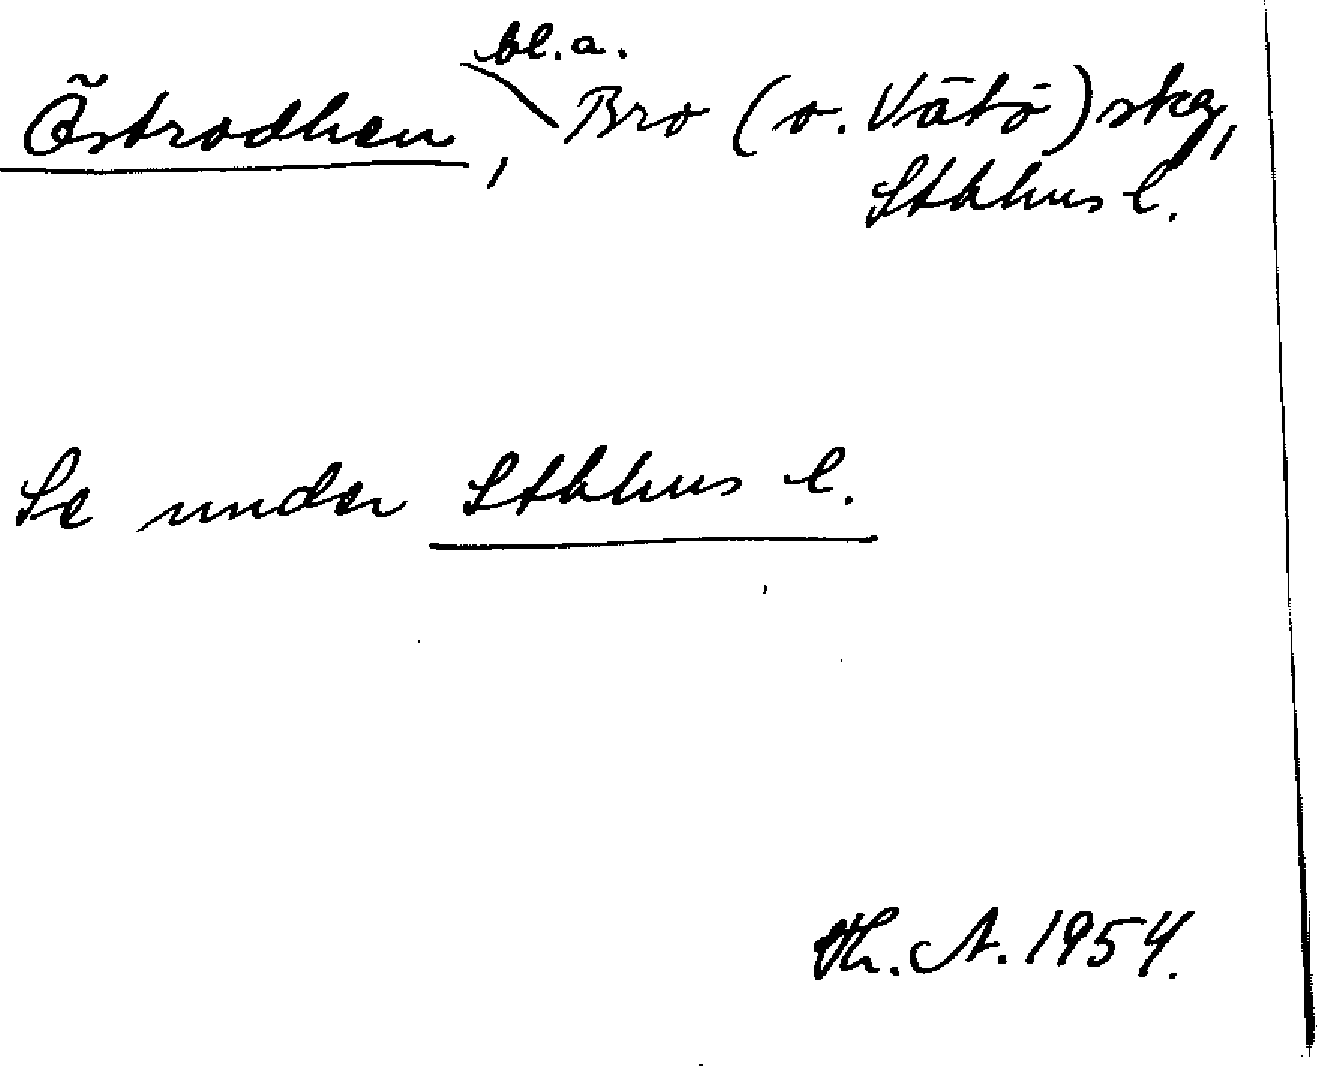 Östrodhen, bl.a. Bro (o. Vätö) skg,
Sthlms l.
Se under Sthlms l.
Th. A. 1954.